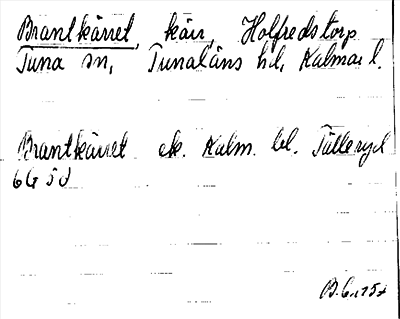 Brantkärret, kärr, Holfredstorp
Tuna sn, Tunaläns hd, Kalmar l.
Brantkärret ek. Kalm. bl. Tälleryd
6G5d